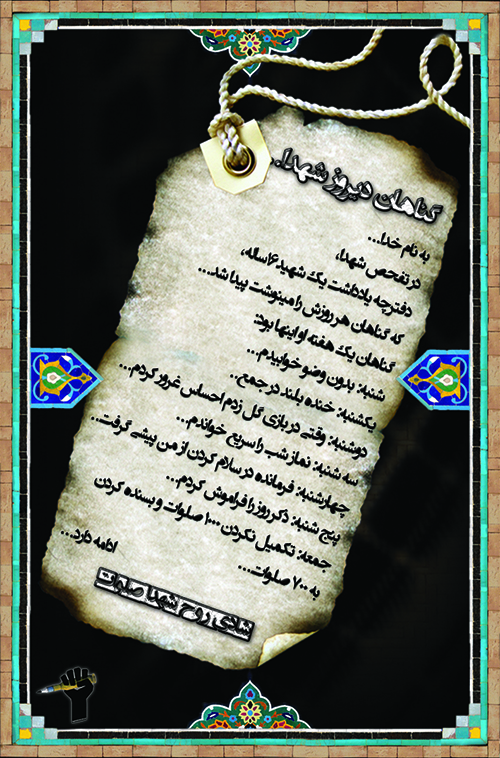 گناهان دیروز شهدا.
به نام خدا...
در تفحص شهدا،
دفترچه یادداشت یک شهید ۱۶ساله،
که گناهان هر روزش را مینوشت پیدا شد...
گناهان یک هفته او اینها بود:
شنبه: بدون وضو خوابیدم...
یکشنبه: خنده بلند در جمع..
دوشنبه: وقتی در بازی گل زدم احساس غرور کردم...
سه شنبه: نماز شب را سریع خواندم...
چهارشنبه: فرمانده در سلام کردن از من پیشی گرفت...
پنج شنبه: ذکر روز را فراموش کردم...
جمعه: تکمیل نکردن ۱۰۰۰ صلوات و بسنده کردن
به ۷۰۰ صلوات...
ادامه دارد...
شادی روح شهدا صلوات